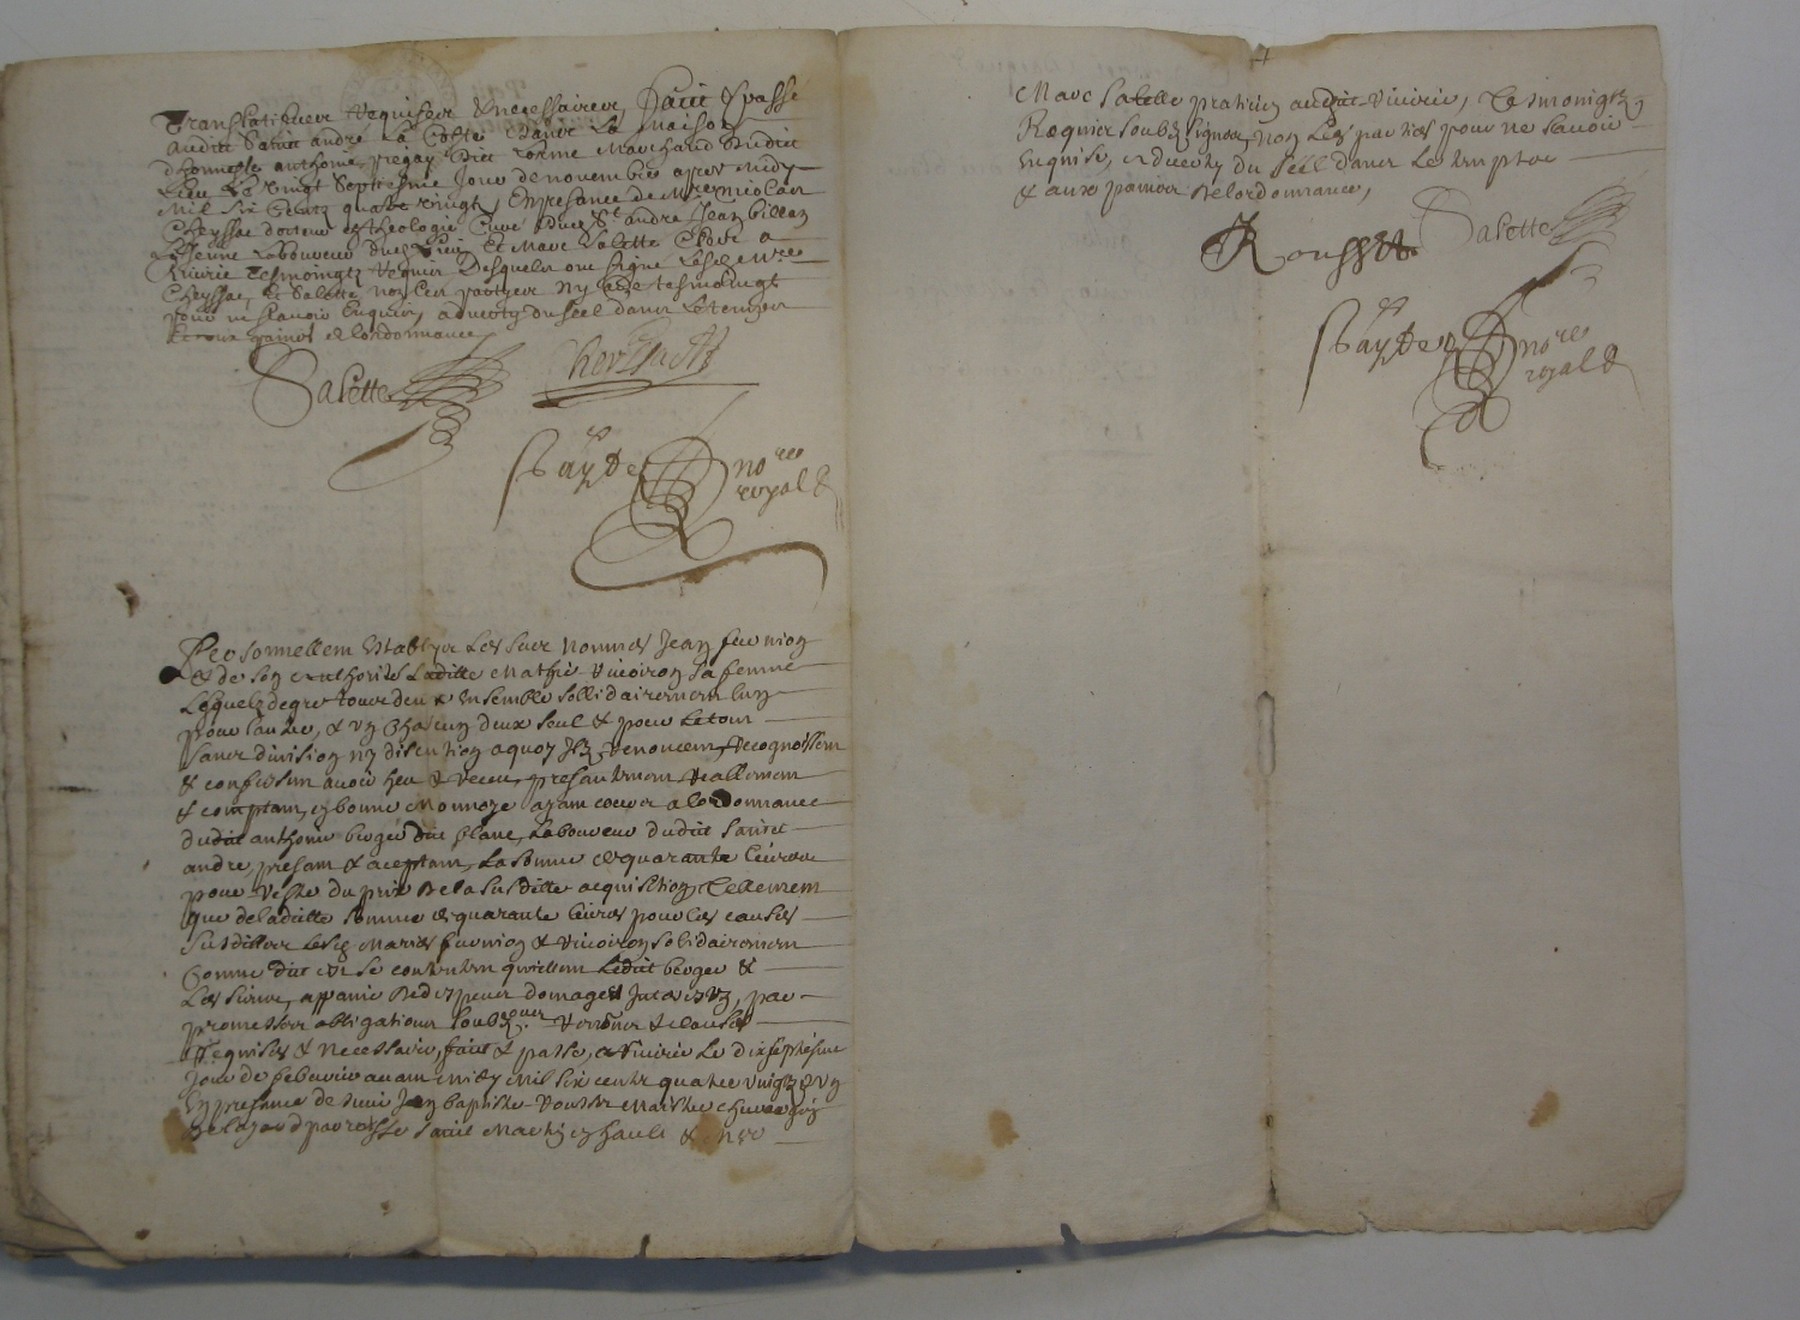 Translatifves requises & necessaires, Faict & passé
audict Sainct andré La Coste dans La maison
d'honneste anthoine pregay dict Lorme Marchand dudict
Lieu Le vingt Septiesme Jour de novembre apres midy
Mil Six Centz quatre vingtz, En presance de Mre nicolas
Cheyssac docteur en theologie Curé dud. St andré Jean
Le Jeune Laboureur dud. Lieu Et Marc Salette Clerc a
vivirie Tesmoingtz requis Desquelz ont Signé Lesd. Mre
Cheyssac, Et Salette, non Les partyes ny
pour ne scavoir Enquis, advertys du seel dans Le temps
Et aux paines de lordonnance
Salette
nore
royal
Personnellem establys Les sus nommés Jean furnion
& de son authorité Laditte Mathie vivoiron sa femme
Lesquelz de gre tous deux ensemble sollidairemem lung
pour lautre, & ung chascung deux seul & pour Le tout
sans division ny discution a quoy Ilz renoncem, recognoissem
& confessem avoir heu & receu presantemem reallemem
& comptam, en bonne monnoye ayam cours a lordonnance
dudit anthoine berger dit blanc, Laboureur dudit sainct
andre, presam & aceptam, La somme de quarante livres
pour reste du prix de la susditte acquisition, Tellemem
que de laditte somme de quarante livres pour les causes
susdittes Lesd. Mariés furnion & vivoiron solidairemem
Comme dit est se contentem quittem Ledit berger &
Les siens, a paine de despens domages Interestz, par
promesses obligations soubzons renons & clauses
Requises & necessaire, faict & passé, a vivirie Le dixseptiesme
Jour de febvrier avam midy mil six centz quatre vingtz & ung
En presance de sieur Jean baptiste Rousset Maistre chirurgien
de parroisse sainct Martin en hault & Mre
Marc Salette praticien audit vivirie, Tesmoingtz
Requis soubzsignés, non Les parties pour ne scavoir
enquises, advertys du seel dans Le temps
& aux paines de lordonnance,
Rousset
Salette
nore
royal